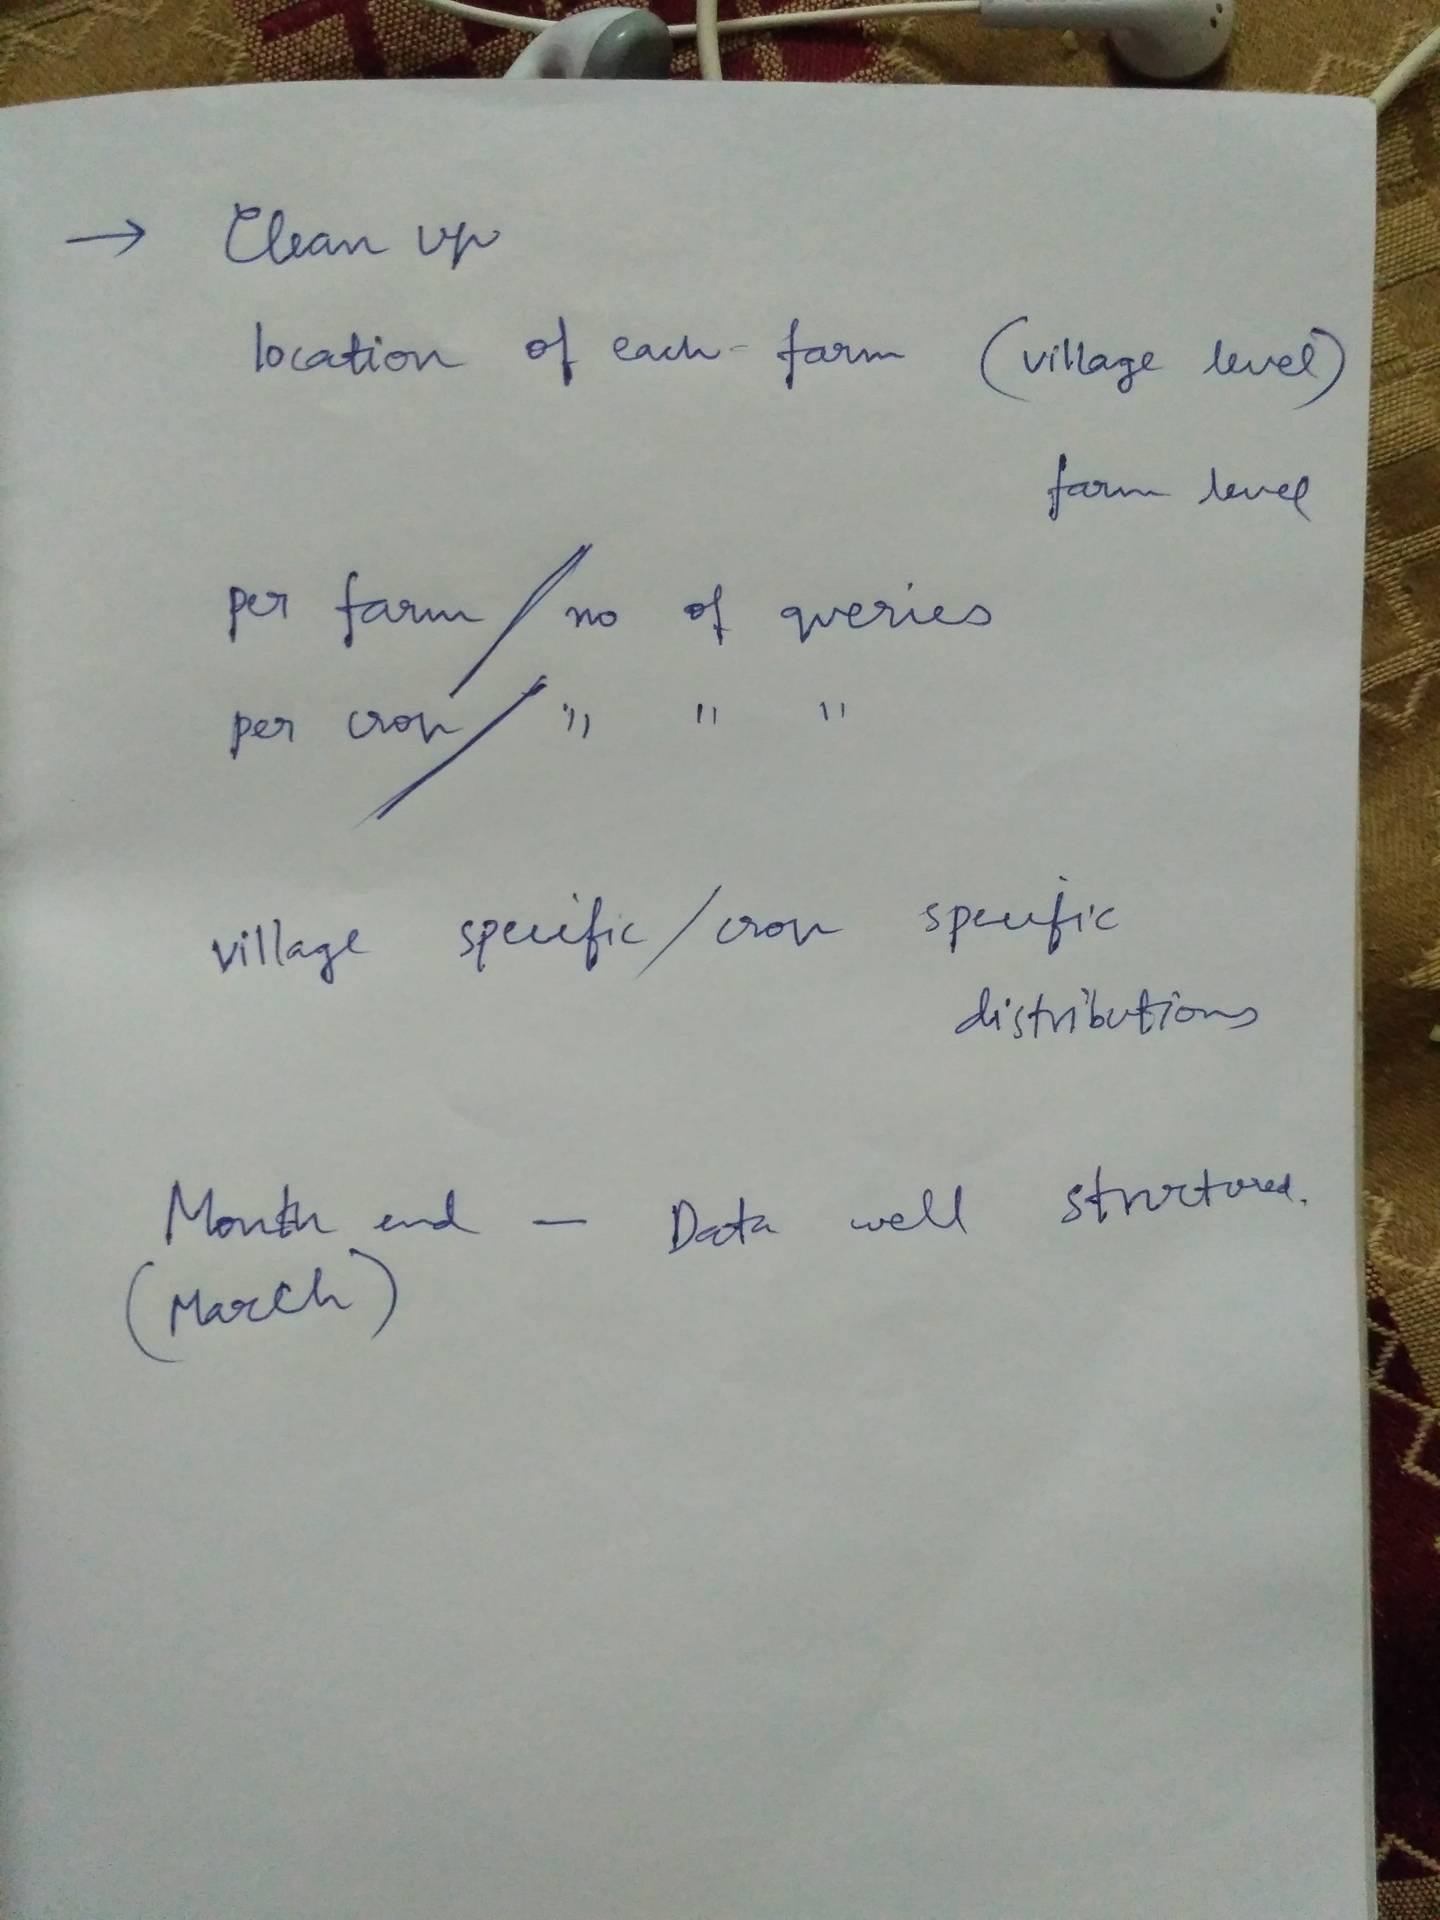 → Clean up
location of each farm (village level)
farm level
per farm / no of queries
per crop / " " "
village specific / crop specific
distributions
Month end – Data well structured.
(March)